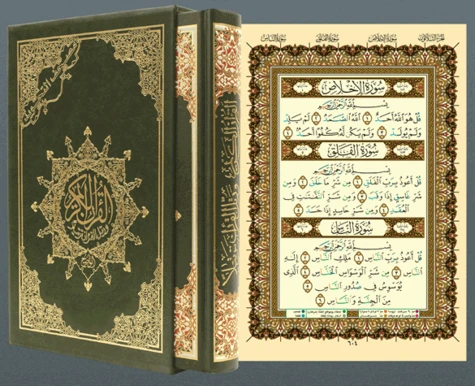 القرآن الكريم
سُورَةُ الإِخْلَاصِ
بِسْمِ اللَّهِ الرَّحْمَٰنِ الرَّحِيمِ
قُلْ هُوَ اللَّهُ أَحَدٌ ١ اللَّهُ الصَّمَدُ ٢ لَمْ يَلِدْ
وَلَمْ يُولَدْ ٣ وَلَمْ يَكُن لَّهُ كُفُوًا أَحَدٌ ٤
سُورَةُ الفَلَقِ
بِسْمِ اللَّهِ الرَّحْمَٰنِ الرَّحِيمِ
قُلْ أَعُوذُ بِرَبِّ الْفَلَقِ ١ مِن شَرِّ مَا خَلَقَ ٢ وَمِن
شَرِّ غَاسِقٍ إِذَا وَقَبَ ٣ وَمِن شَرِّ النَّفَّٰثَٰتِ فِي
الْعُقَدِ ٤ وَمِن شَرِّ حَاسِدٍ إِذَا حَسَدَ ٥
سُورَةُ النَّاسِ
بِسْمِ اللَّهِ الرَّحْمَٰنِ الرَّحِيمِ
قُلْ أَعُوذُ بِرَبِّ النَّاسِ ١ مَلِكِ النَّاسِ ٢ إِلَٰهِ
النَّاسِ ٣ مِن شَرِّ الْوَسْوَاسِ الْخَنَّاسِ ٤ الَّذِي
يُوَسْوِسُ فِي صُدُورِ النَّاسِ ٥
مِنَ الْجِنَّةِ وَالنَّاسِ ٦
٦٠٤